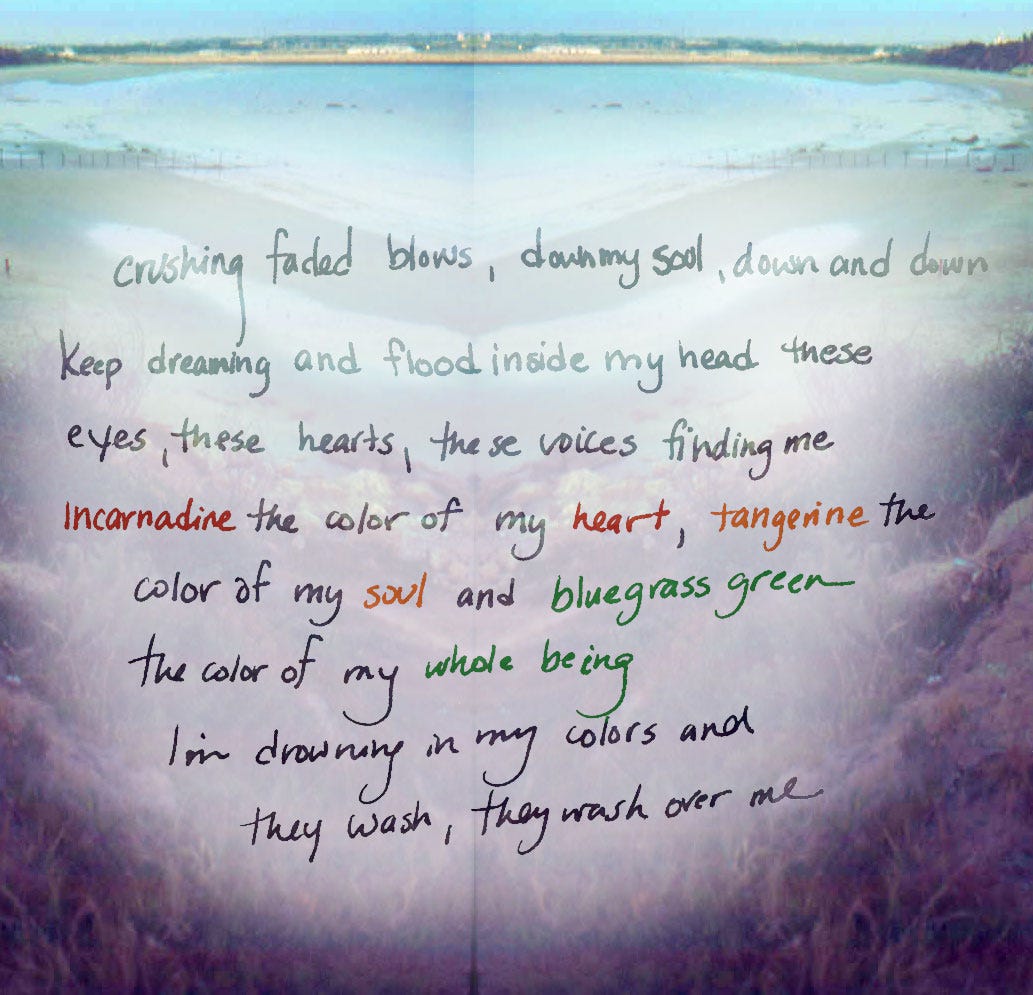 crushing faded blows, down my soul, down and down
Keep dreaming and flood inside my head these
eyes, these hearts, these voices finding me
Incarnadine the color of my heart, tangerine the
color of my soul and bluegrass green
the color of my whole being
I'm drowning in my colors and
they wash, they wash over me